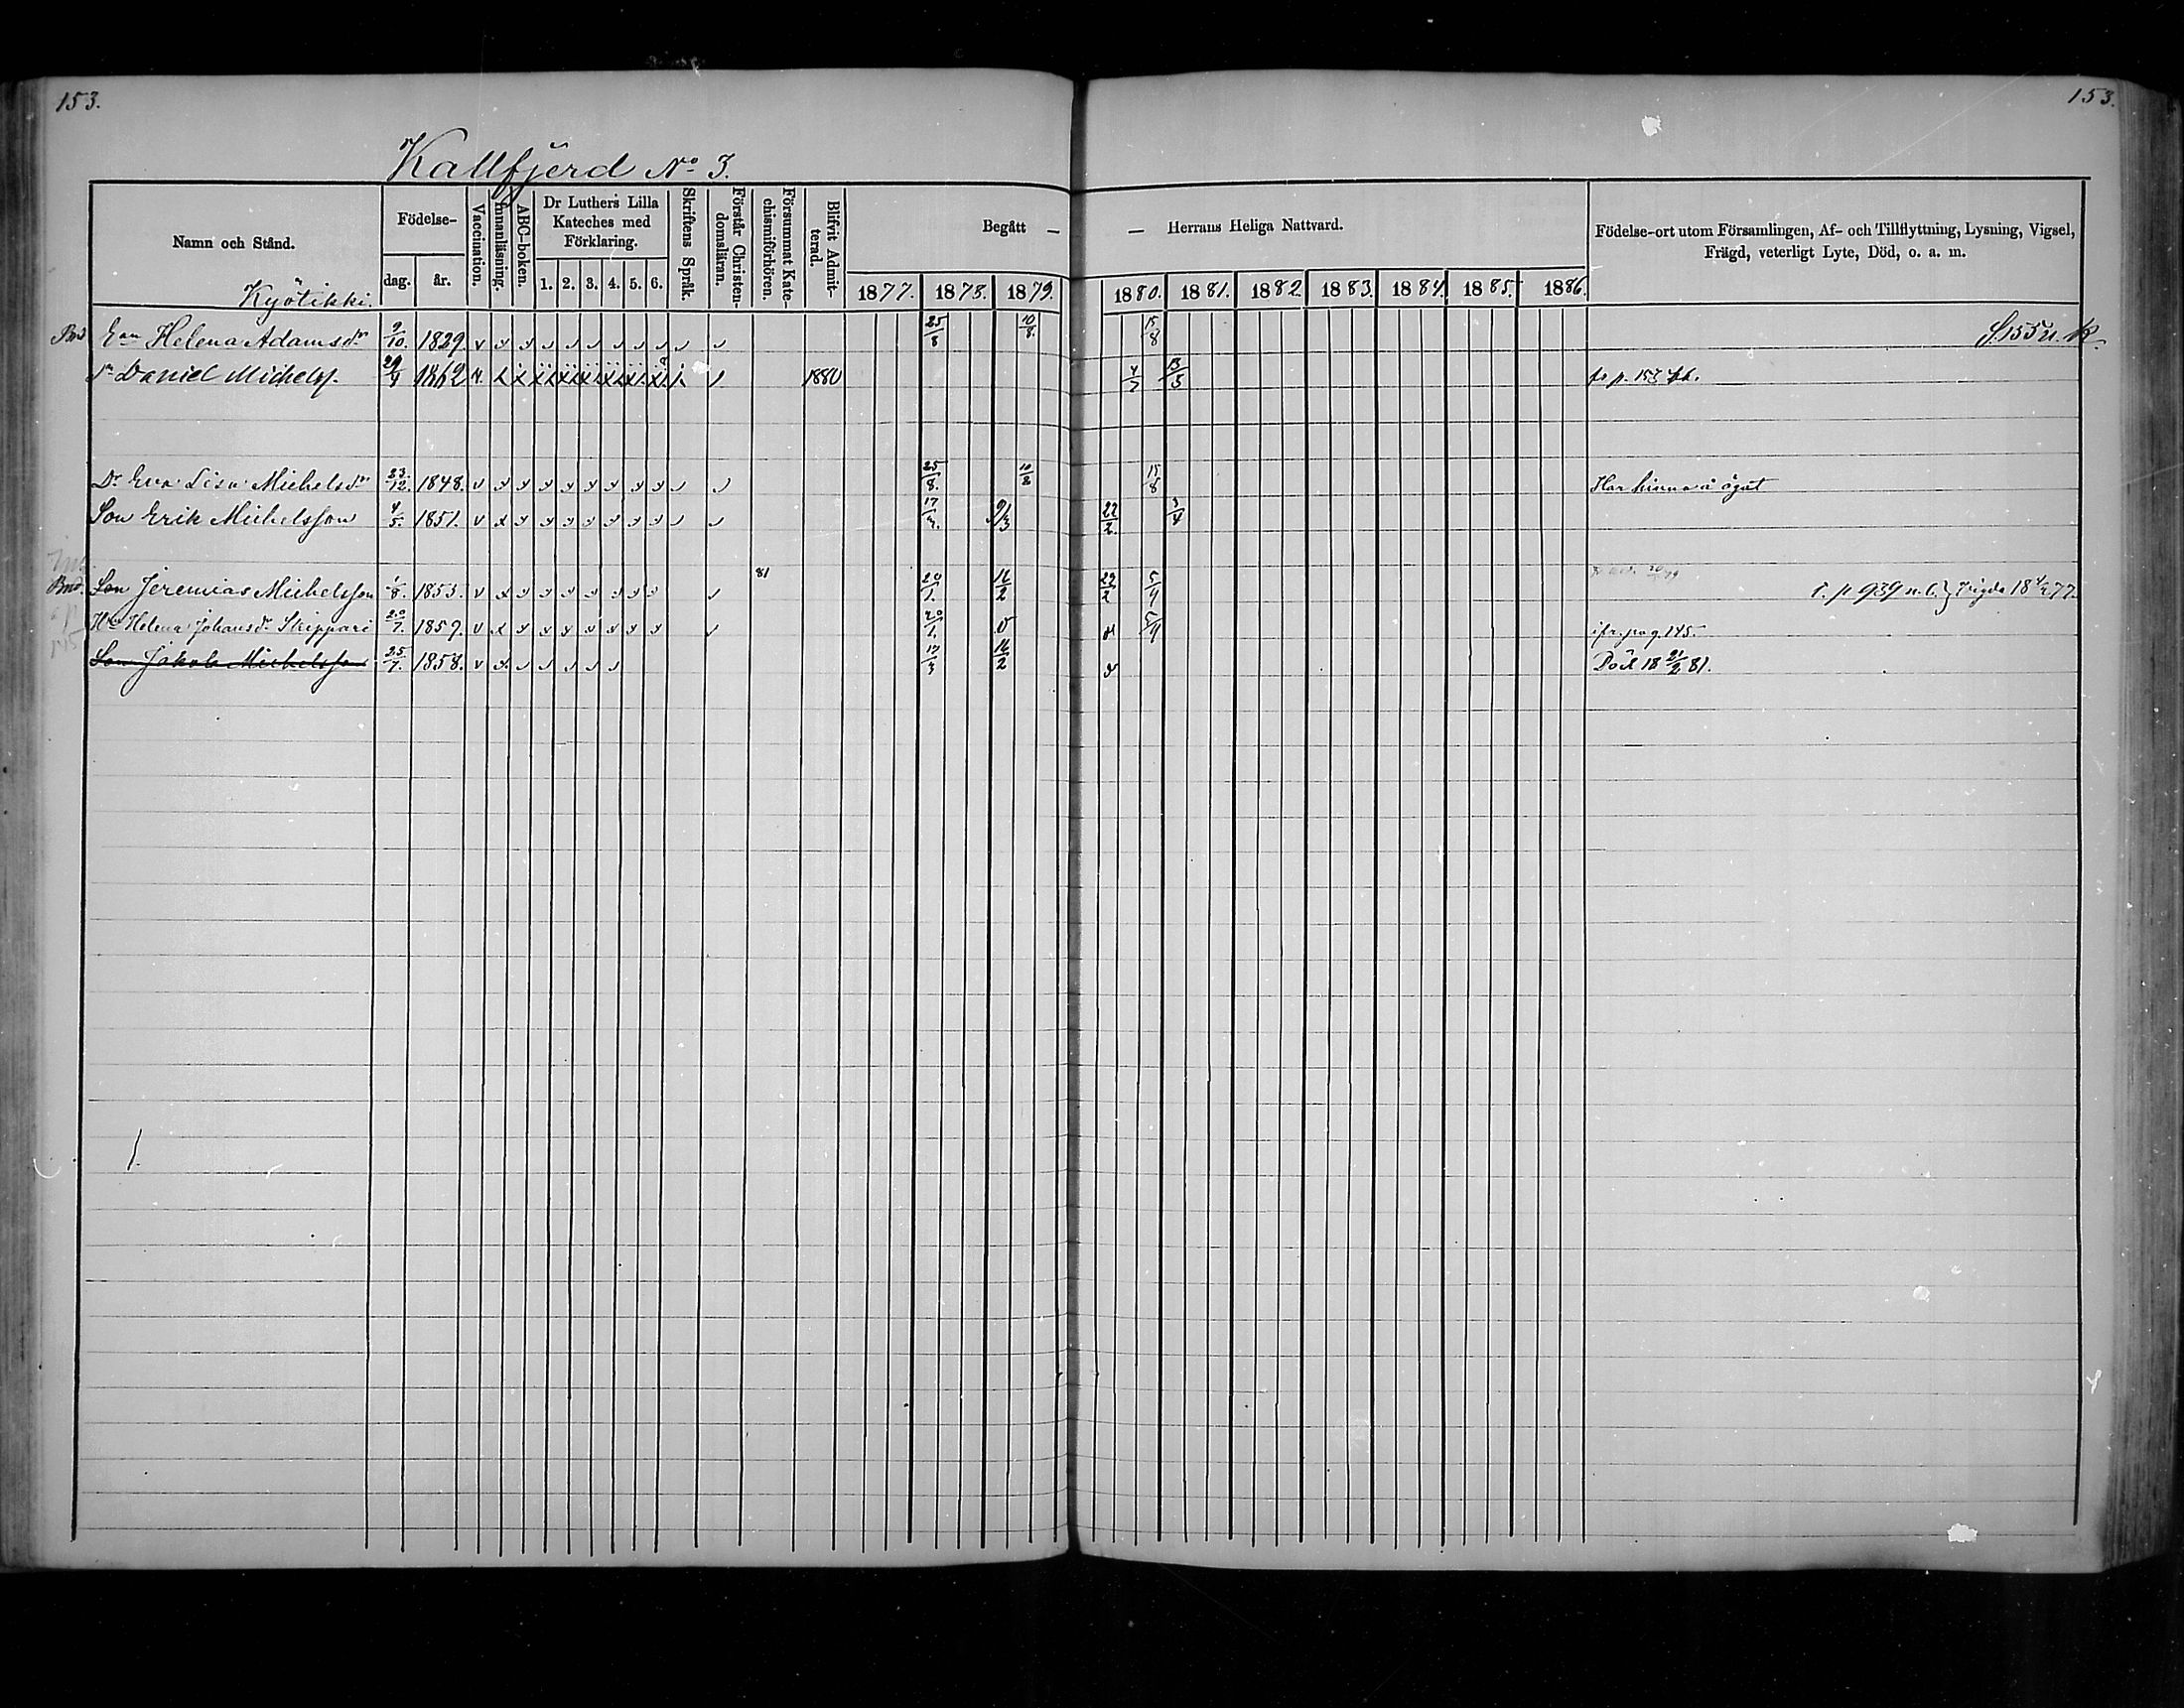 153. 153.
Kallfjerd No 3.
Namn och Stånd. Födelse- dag. år. Vaccination. Innanläsning. ABC-boken. Dr Luthers Lilla Kateches med Förklaring. 1. 2. 3. 4. 5. 6. Skriftens Språk. Förstår Christen-domsläran. Försummat Kate-chismiförhören. Blifvit Admit-terad. Begått — — Herrans Heliga Nattvard. Födelse-ort utom Församlingen, Af- och Tillflyttning, Lysning, Vigsel, Frägd, veterligt Lyte, Död, o. a. m.
1877. 1878. 1879. 1880. 1881. 1882. 1883. 1884. 1885. 1886.
Kyötikki.
Helena Adamsdr 9/10. 1829. v 25/8 10/8. 15/8
Daniel Michelss. 1862 1880 4/7 13/5
Dr Eva Lisa Michelsdr 23/12. 1848. v 25/8. 10/8 15/8 Har hinna å ögat
Son Erik Michelsson 4/5. 1851. v 17/3. 9/3 22/2 3/4
81
Son Jeremias Michelsson 1/8. 1853. v 20/1. 16/2 22/2 5/4 p 939 n. b. Vigda 18 77.
Hu Helena Johansdr Skippari 20/7. 1859. v 20/1. v 5/4 ifr. pag. 145.
Son Jakob Michelsson 25/7. 1858. v 17/3 16/2 Död 18 21/2 81.